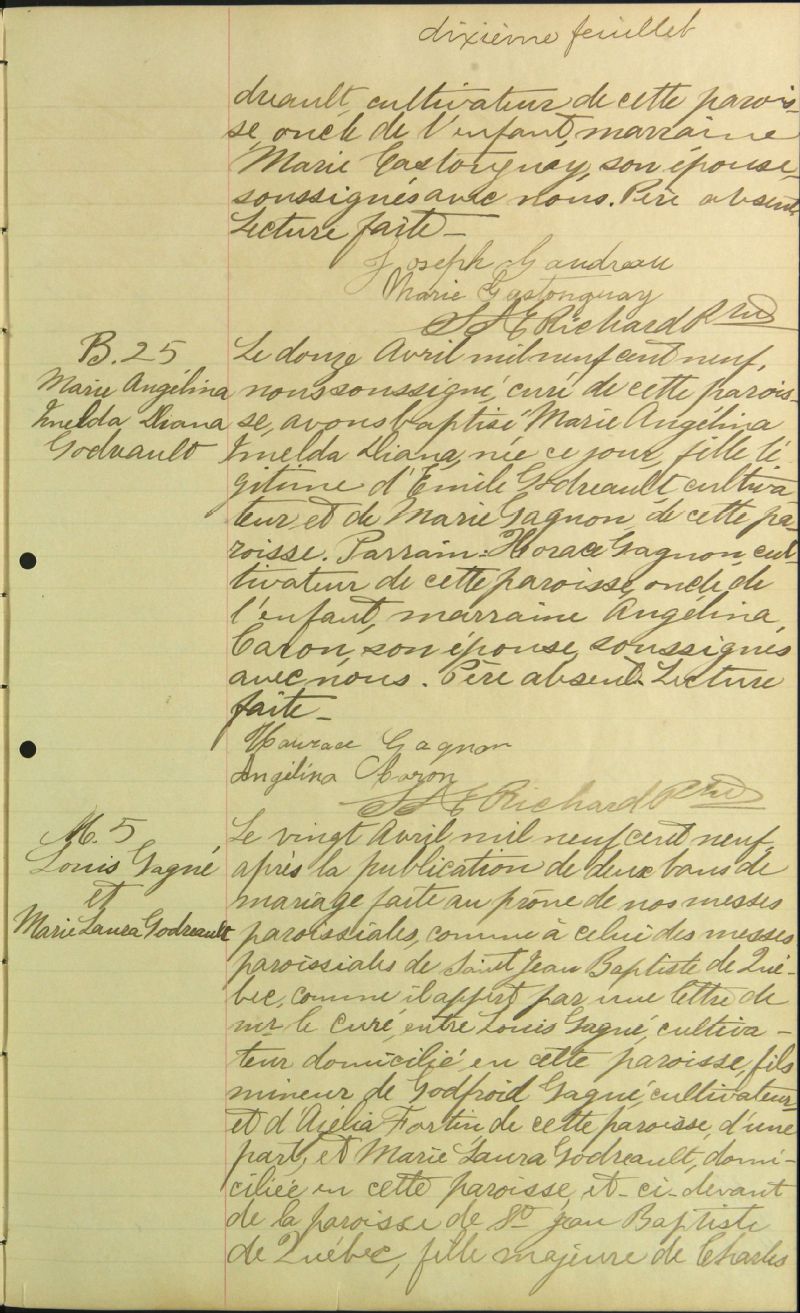 dixième feuillet
dreault, cultivateur de cette parois-
se, oncle de l'enfant, marraine
Marie Castonguay, son épouse,
soussignés avec nous. Père absent.
Lecture faite_
Joseph Gaudreau
Marie Gastonguay
Richard Ptre
B. 25
Marie Angélina
Imelda Diana
Godreault
Le douze Avril mil neuf cent neuf,
nous soussigné, curé de cette parois-
se, avons baptisé Marie Angélina
Imelda Diana, née ce jour, fille lé-
gitime d'Émile Godreault, cultiva-
teur, et de Marie Gagnon, de cette pa-
roisse. Parrain: Horace Gagnon, cul-
tivateur de cette paroisse, oncle de
l'enfant, marraine Angélina
Caron, son épouse, soussignés
avec nous. Père absent. Lecture
faite_
Haurace Gagnon
Angélina Caron
Richard Ptre
M. 5
Louis Gagné
et
Marie Laura Godreault
Le vingt Avril mil neuf cent neuf,
après la publication de deux bans de
mariage faite au prône de nos messes
paroissiales, comme à celui des messes
paroissiales de Saint Jean Baptiste de Qué-
bec, comme il appert par une lettre de
mr le curé, entre Louis Gagné, cultiva-
teur domicilié en cette paroisse, fils
mineur de Godfroid Gagné, cultivateur
et d'Azélia Fortin de cette paroisse, d'une
part, et Marie Laura Godreault, domi-
ciliée en cette paroisse et ci-devant
de la paroisse de St Jean Baptiste
de Québec, fille majeure de Charles